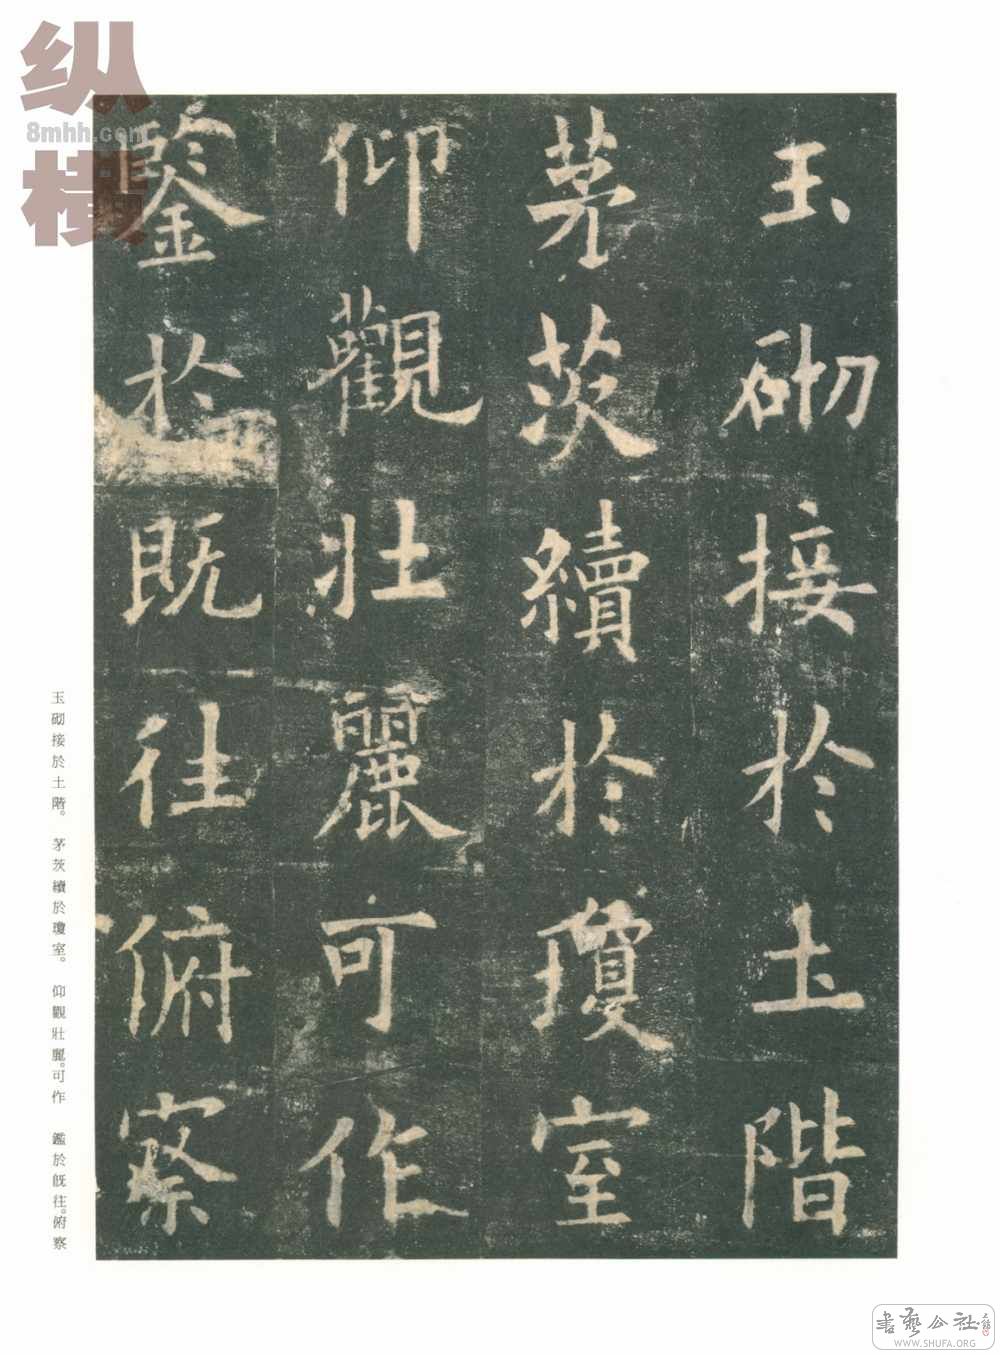 玉砌接於土階
茅茨續於瓊室
仰觀壯麗可作
鑒於既往俯察
玉砌接於土階。茅茨續於瓊室。仰觀壯麗。可作鑑於既往。俯察
纵横
8mhh.com
書藝公社
WWW.SHUFA.ORG